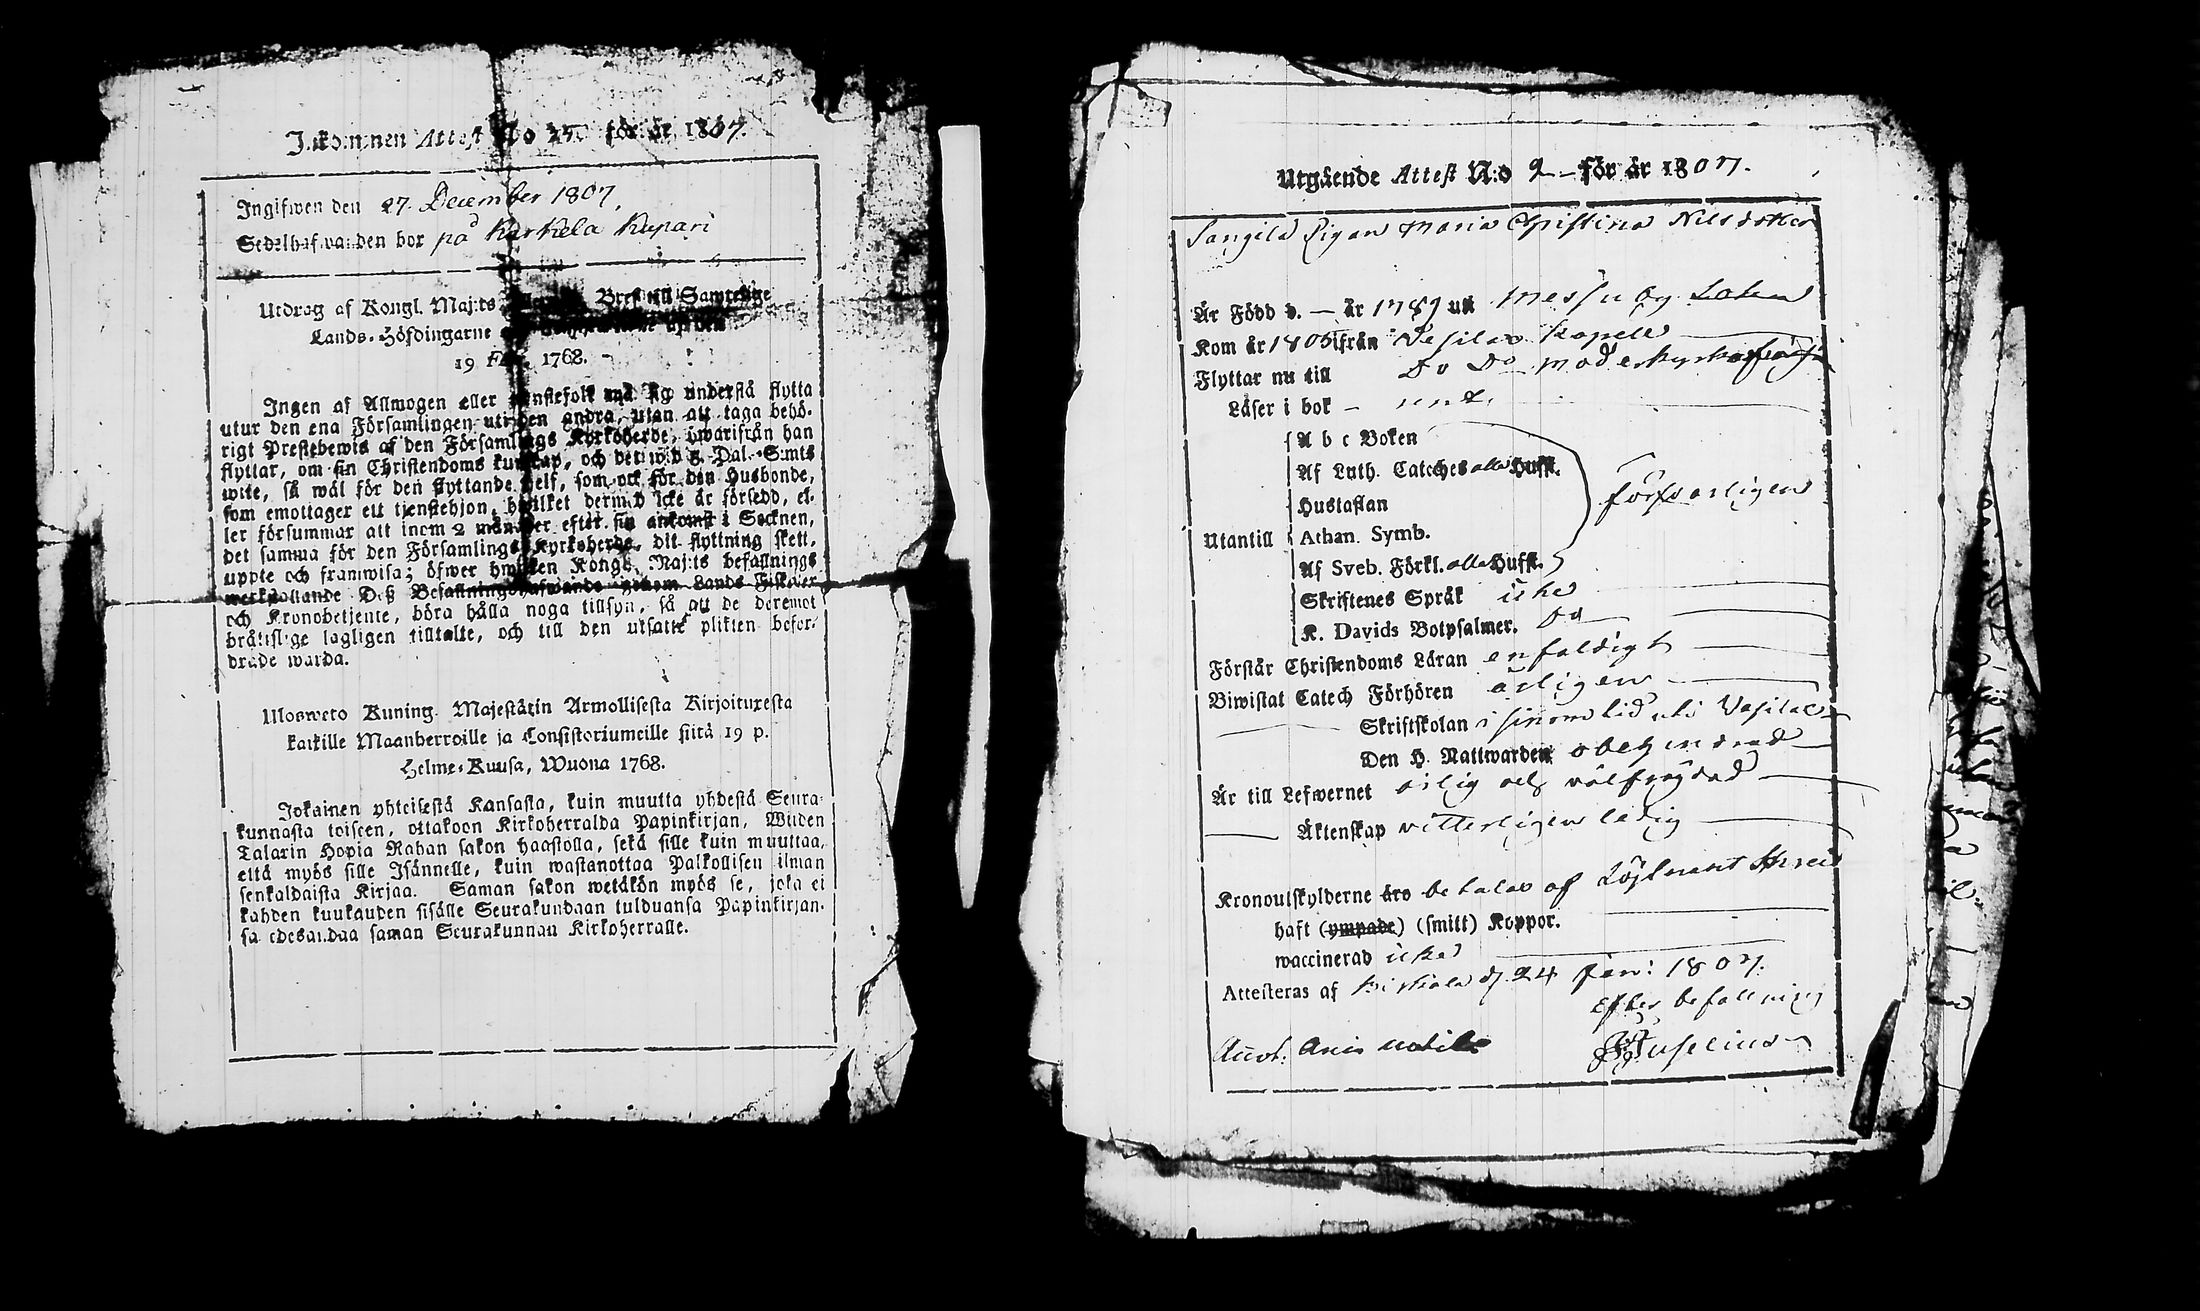 Inkommen Attest No 25 för år 1807.
Ingifwen den 27 December 1807,
Sedelhafwanden bor på Karkela Kupari
Utdrag af Kongl. Maj:ts Bref till Samtelige
Lands-Höfdingarne
19 Feb. 1768.
Ingen af Allmogen eller tjenstefolk må sig understå flytta
utur den ena Församlingen uti den andra, utan att taga behö-
rigt Prestebewis af den Församlings Kyrkoherde, hwarifrån han
flyttar, om sin Christendoms kunskap, och det wid 5. Dal. S:mts
wite, så wäl för den flyttande self, som ock för den Husbonde,
som emottager ett tjenstehjon, hwilket dermed icke är försedd, el-
ler försummar att inom 2 månader efter sin ankomst i Socknen,
det samma för den Församlings Kyrkoherde, dit flyttning skett,
uppte och framwisa; öfwer hwilken Kongl. Maj:ts befallnings
werkställande Deß Befallningshafwande genom Lands Fiskaler
och Kronobetjente, böra hålla noga tillsyn, så att de deremot
bråttslige lagligen tilltalte, och till den utsatte plikten befor-
drade warda.
Ulosweto Kuning. Majestätin Armollisesta Kirjoituxesta
kaikille Maanherroille ja Consistoriumeille siitä 19 p.
Helme-Kuusa, Wuona 1768.
Jokainen yhteisestä Kansasta, kuin muutta yhdestä Seura-
kunnasta toiseen, ottakoon Kirkoherralda Papinkirjan, Wiiden
Talarin Hopia Rahan sakon haastolla, sekä sille kuin muuttaa,
että myös sille Isännelle, kuin wastanottaa Palkollisen ilman
senkaldaista Kirjaa. Saman sakon wetäkön myös se, joka ei
kahden kuukauden sisälle Seurakundaan tulduansa Papinkirjan-
sa edesandaa saman Seurakunnan Kirkoherralle.
Utgående Attest N:o 2 – för år 1807.
Pigan Maria Christina Nilsdotter
Är Född d. — år 1789 uti Messuby Sokn
Kom år 1805 ifrån Vesilax Kapell
Flyttar nu till Do Do moderkyrko
Läser i bok –
A b c Boken
Af Luth. Cateches alla Hufst.
Hustaflan
Utantill Athan. Symb.
Af Sveb. Förkl. alla Hufst. försvarligen
Skriftenes Språk icke
K. Davids Botpsalmer. Do
Förstår Christendoms Läran enfaldigt
Biwistat Catech Förhören årligen
Skriftskolan i sinom tid uti Vesilax
Den H. Nattwarden obehindrad
Är till Lefwernet ärlig och välfrägdad
Äktenskap vitterligen ledig
Kronoutskylderne äro betalas af Löjtnant
haft (ympade) (smitt) Koppor.
waccinerad icke
Attesteras af Birkala d. 24 Jan: 1807.
efter befallning